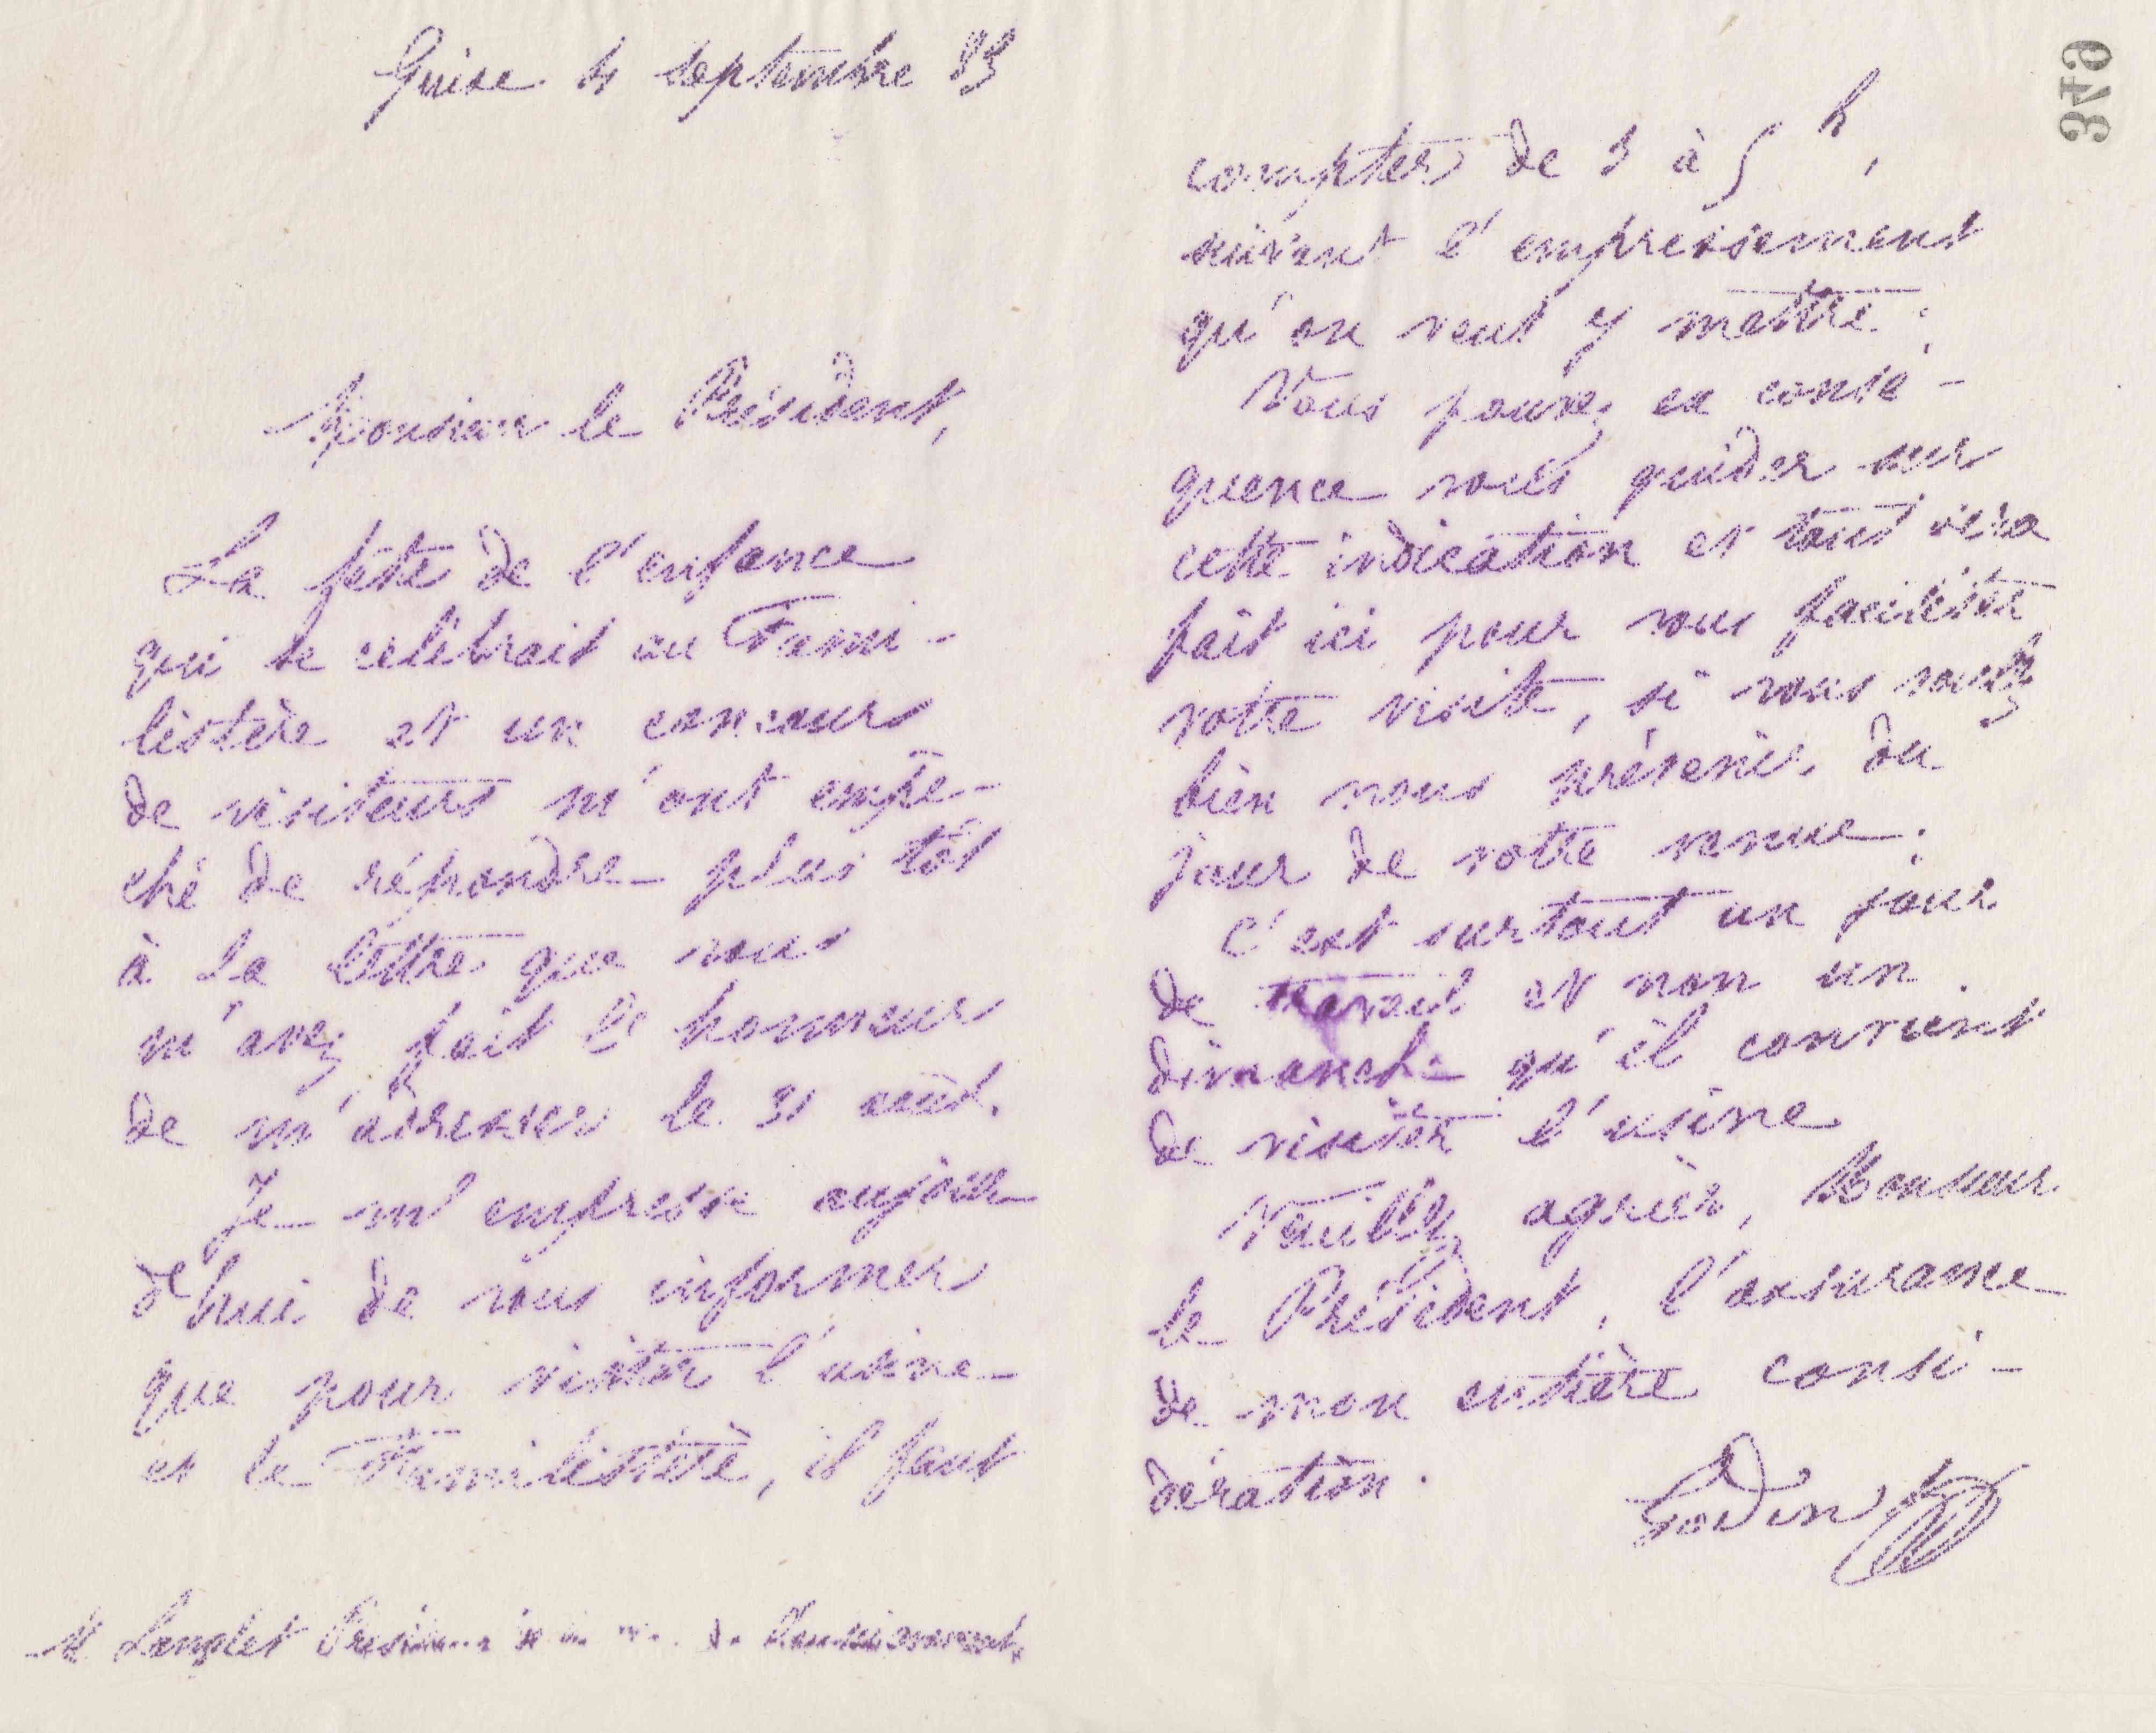 Guise 4 septembre 83
Monsieur le Président,
La fête de l'enfance
qui se célébrait au Fami-
listère et un concours
de visiteurs m'ont empê-
ché de répondre plus tôt
à la lettre que vous
m'avez fait l'honneur
de m'adresser le 31 août.
Je m'empresse aujour
d'hui de vous informer
que pour visiter l'usine
et le Familistère, il faut
M Langlet Président
376
compter de 3 à 5 h,
suivant l'empressement
qu'on veut y mettre.
Vous pouvez en consé-
quence vous guider sur
cette indication et tout sera
fait ici pour vous faciliter
votre visite, si vous voulez
bien nous prévenir du
jour de votre venue.
C'est surtout un jour
de travail et non un
dimanche qu'il convient
de visiter l'usine
Veuillez agréer, Monsieur
le Président, l'assurance
de mon entière consi-
dération.
Godin